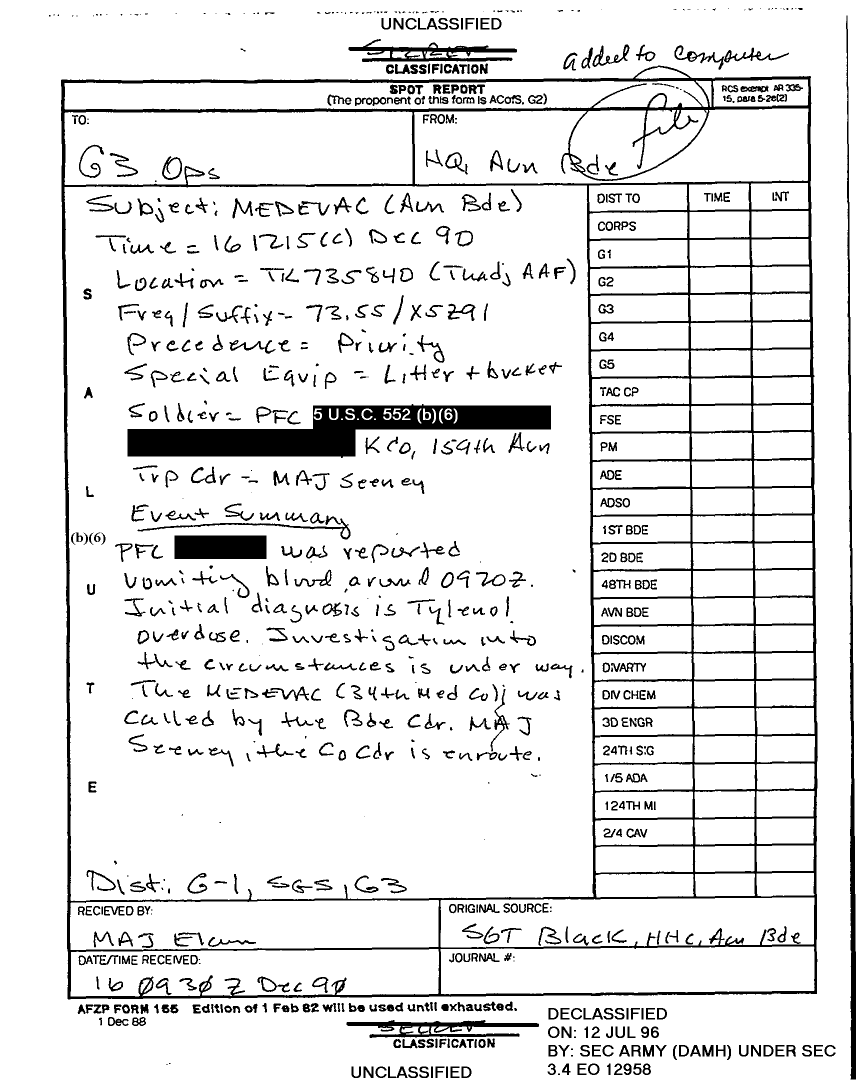 UNCLASSIFIED
SECRET
CLASSIFICATION
added to computer
SPOT REPORT
(The proponent of this form is ACofS, G2)
RCS exempt AR 335-
15, para 5-2e(2)
file
TO:
G3 Ops
FROM:
HQ, Avn Bde
Subject: MEDEVAC (Avn Bde)
Time = 161215(C) Dec 90
Location = TK735840 (Thadj AAF)
Freq/Suffix - 73.55/X5Z91
Precedence = Priority
Special Equip = Litter + bucket
Soldier = PFC 5 U.S.C. 552 (b)(6)
K Co, 159th Avn
Trp Cdr - MAJ Seeney
Event Summary
(b)(6)
PFC was reported
vomiting blood around 0920Z.
Initial diagnosis is Tylenol
overdose. Investigation into
the circumstances is under way.
The MEDEVAC (34th Med Co) was
called by the Bde Cdr. MAJ
Seeney, the Co Cdr is enroute.
Dist: G-1, SGS, G3
S
A
L
U
T
E
DIST TO TIME INT
CORPS
G1
G2
G3
G4
G5
TAC CP
FSE
PM
ADE
ADSO
1ST BDE
2D BDE
48TH BDE
AVN BDE
DISCOM
DIVARTY
DIV CHEM
3D ENGR
24TH SIG
1/5 ADA
124TH MI
2/4 CAV
RECIEVED BY:
MAJ Elam
ORIGINAL SOURCE:
SGT Black, HHC, Avn Bde
DATE/TIME RECEIVED:
16 0930 Z Dec 90
JOURNAL #:
AFZP FORM 155 Edition of 1 Feb 82 will be used until exhausted.
1 Dec 88
SECRET
CLASSIFICATION
UNCLASSIFIED
DECLASSIFIED
ON: 12 JUL 96
BY: SEC ARMY (DAMH) UNDER SEC
3.4 EO 12958